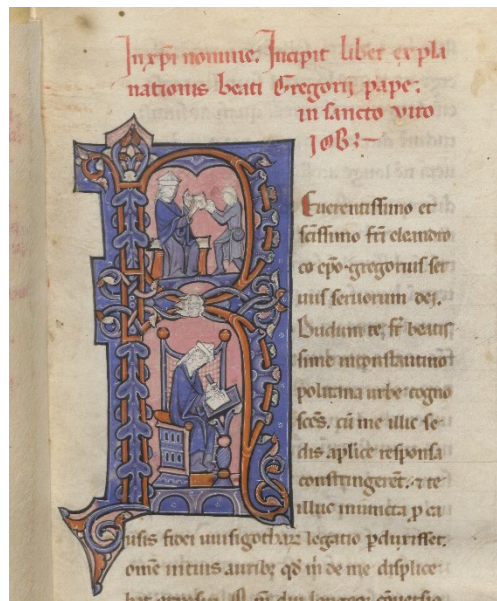 In xpi nomine. Incipit liber expla
nationis beati Gregorii pape:
in sancto viro
IOB:
R
Euerentissimo et
scissimo fri leandro
co epo. gregorius ser
uus seruorum dei.
Dudum te fr beatis
sime in constantino
politana urbe cogno
scēs. cū me illic se
dis aplice responsa
constringerēt. & te
illuc iniuncta p cau
sis fidei uuisigothar legatio pduxisset.
omē in tuis auribꝫ qd m de me displice